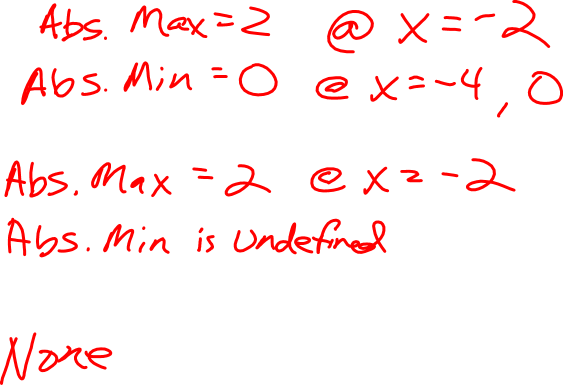 Abs. Max = 2 @ x = -2
Abs. Min = 0 @ x = -4, 0
Abs. Max = 2 @ x = -2
Abs. Min is undefined
None